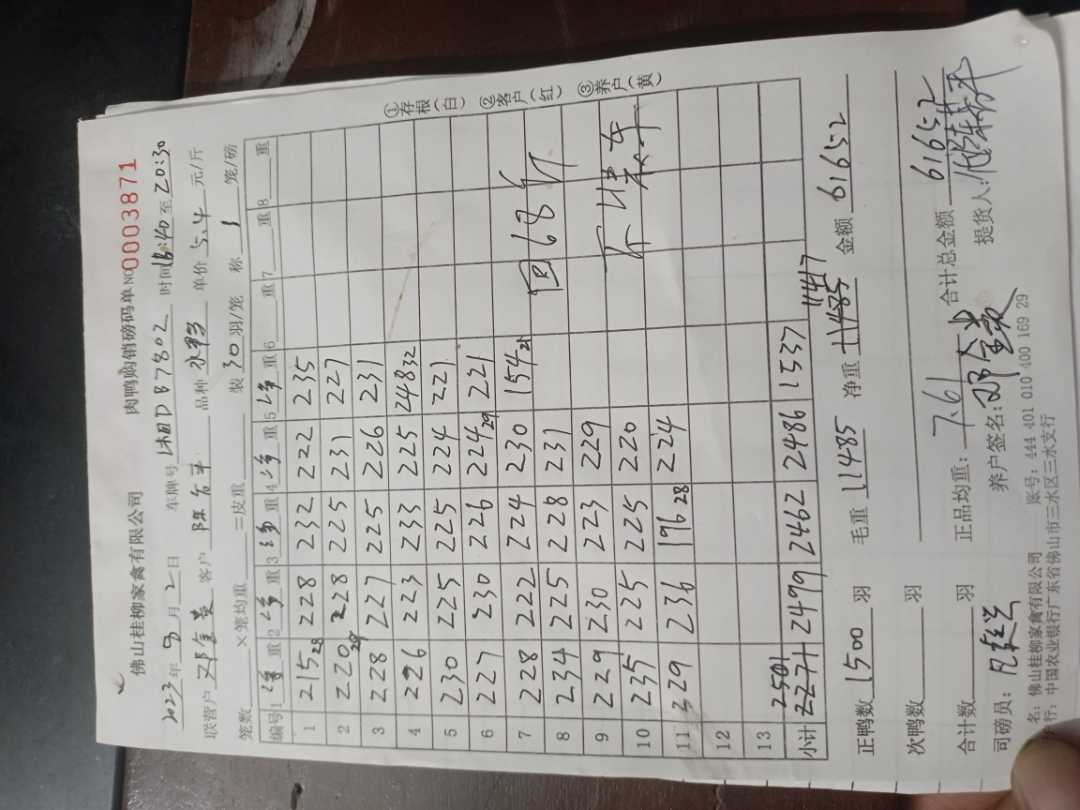 佛山桂柳家禽有限公司 肉鸭购销磅码单 NO 0003871
2023年9月2日 车牌号 湘DB7802 时间 16:40 至 20:30
联营户 邓金英 客户 陈 品种 水鸭 单价 5.4 元/斤
笼数 ×笼均重 =皮重 装 30 羽/笼 称 1 笼/磅
编号 1 重 2 重 3 重 4 重 5 重 6 重 7 重 8 重
1 215 28 228 232 222 235
2 220 29 228 225 231 227
3 228 227 225 226 231
4 226 223 233 225 248 32
5 230 225 225 224 221
6 227 230 226 224 29 221
7 228 222 224 230 154 21
8 234 225 228 231 回68斤
9 229 230 223 229
10 235 225 225 220
11 229 236 196 28 224
12
13
2501
小计 2271 2499 2462 2486 1537
11417
正鸭数 1500 羽 毛重 11485 净重 11485 金额 61652
次鸭数 羽
合计数 羽 正品均重: 7.61 合计总金额 61652
司磅员: 养户签名: 邓金英 提货人:
名: 佛山桂柳家禽有限公司 账号: 444 401 010 400 169 29
行: 中国农业银行广东省佛山市三水区三水支行
①存根(白) ②客户(红) ③养户(黄)